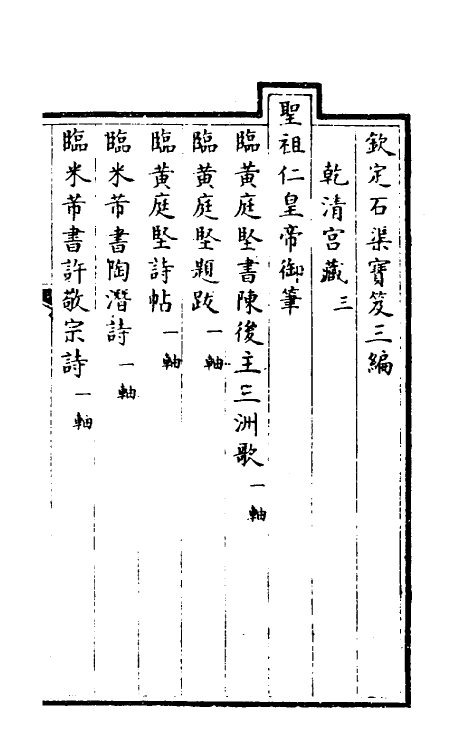 欽定石渠寶笈三編
乾清宮藏三
聖祖仁皇帝御筆
臨黃庭堅書陳後主三洲歌一軸
臨黃庭堅題跋一軸
臨黃庭堅詩帖一軸
臨米芾書陶潛詩一軸
臨米芾書許敬宗詩一軸